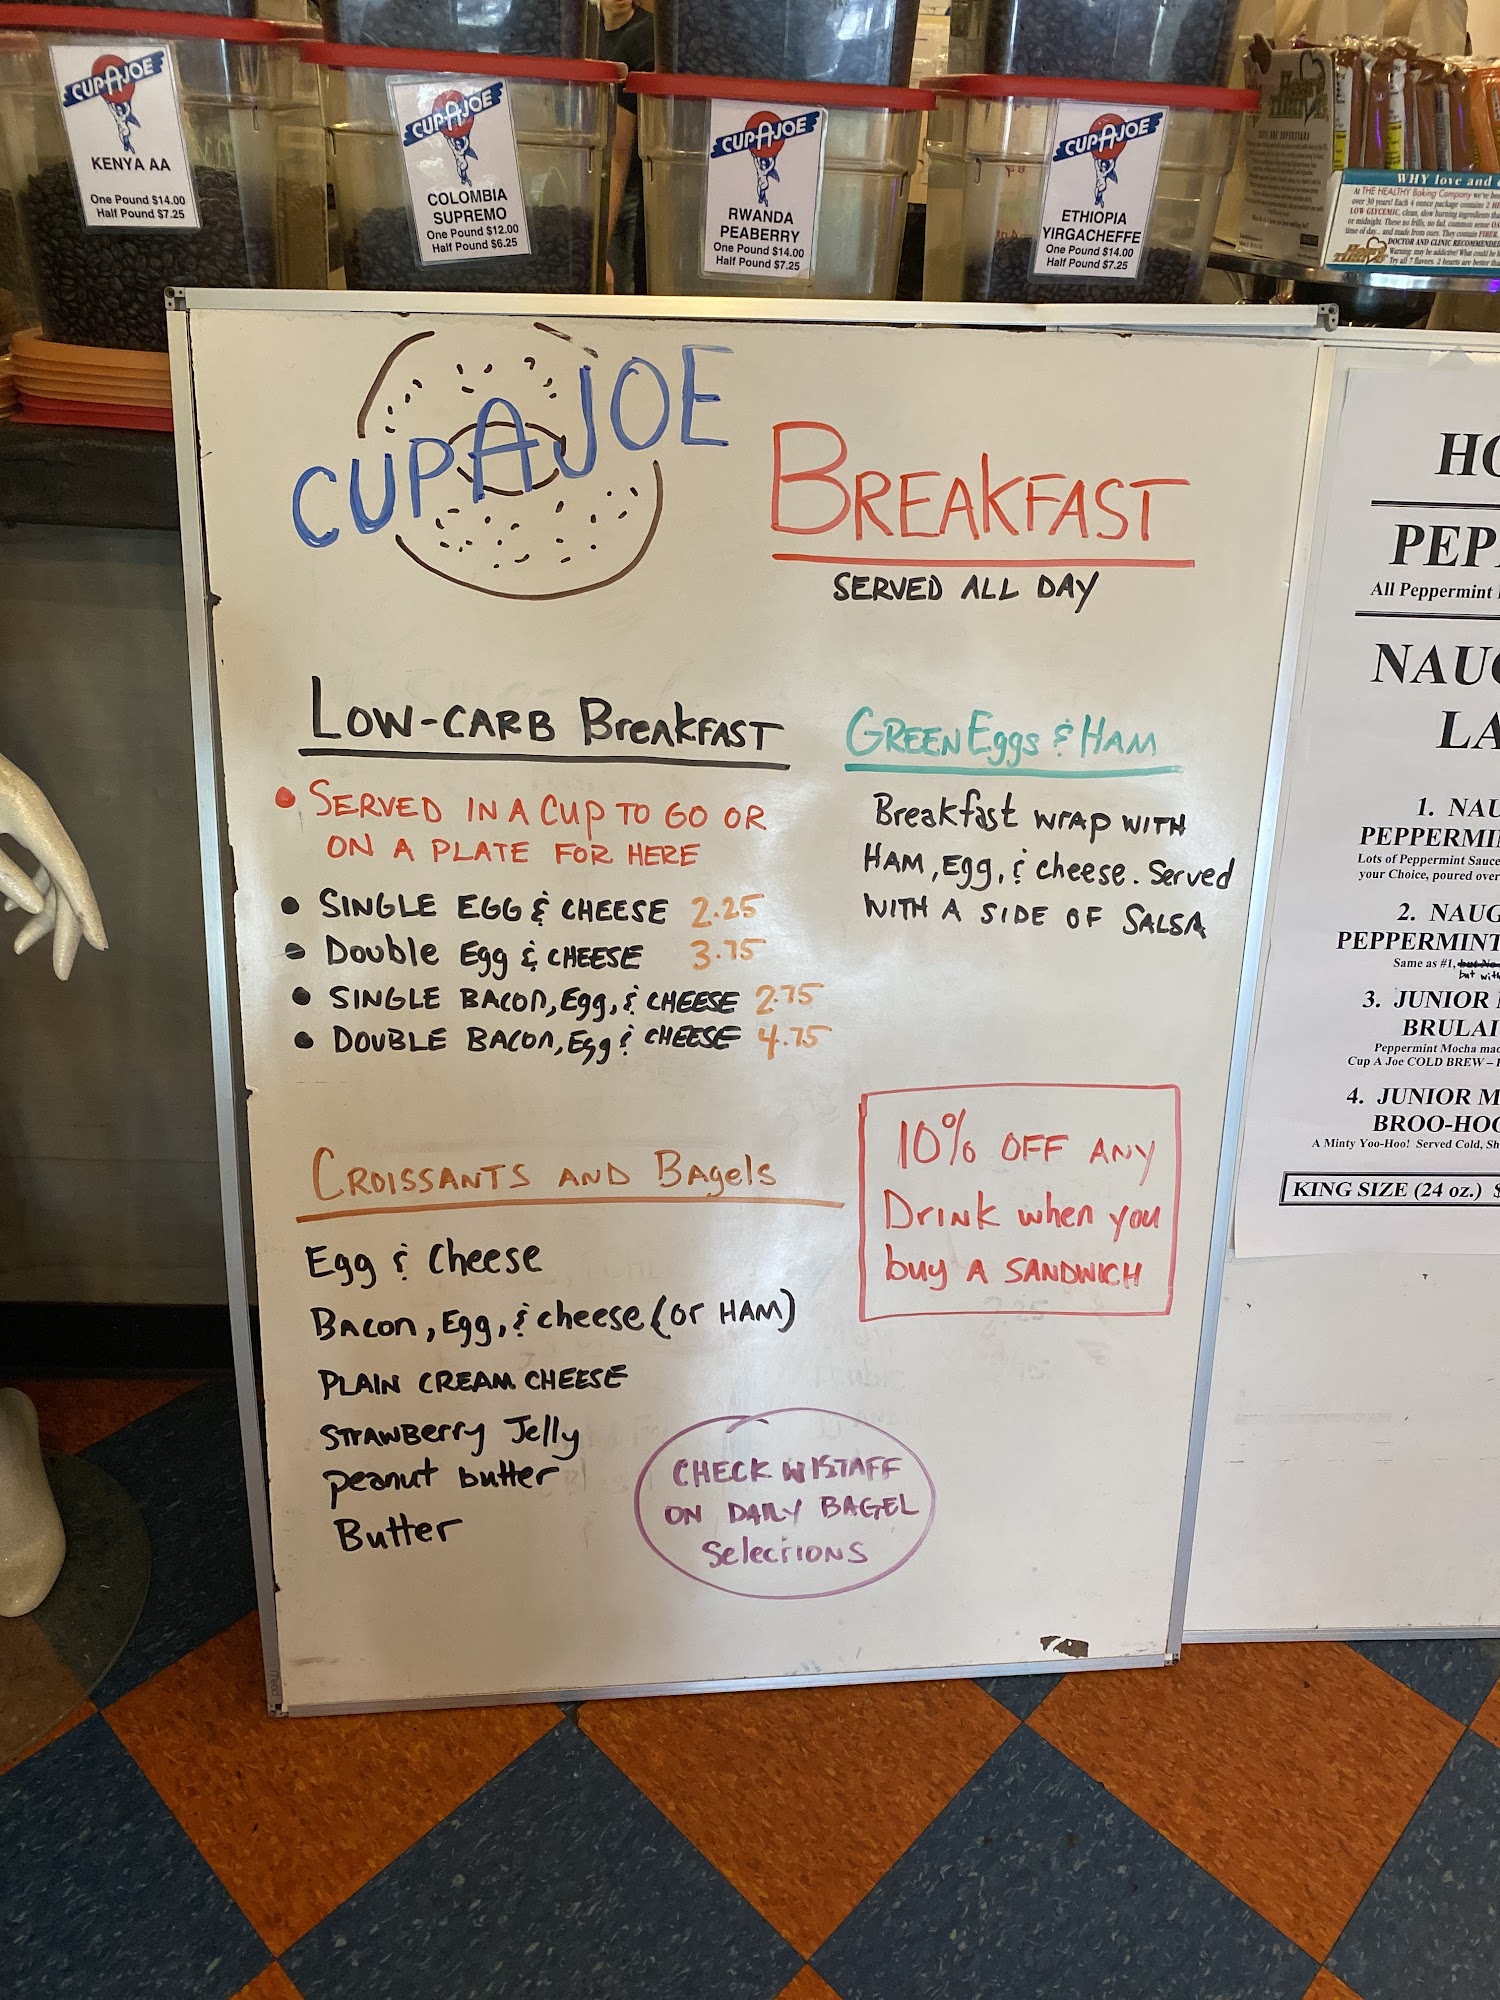 CUPAJOE
KENYA AA
One Pound $14.00
Half Pound $7.25
CUPAJOE
COLOMBIA
SUPREMO
One Pound $12.00
Half Pound $6.25
CUPAJOE
RWANDA
PEABERRY
One Pound $14.00
Half Pound $7.25
CUPAJOE
ETHIOPIA
YIRGACHEFFE
One Pound $14.00
Half Pound $7.25
WHY love and
At THE HEALTHY Baking Company we've
over 30 years! Each 4 ounce package contains 2
LOW GLYCEMIC, clean, slow burning ingredients
DOCTOR AND CLINIC RECOMMENDED
CUPAJOE
BREAKFAST
SERVED ALL DAY
LOW-CARB BreakFAST
• SERVED IN A CUP TO GO OR
ON A PLATE FOR HERE
• SINGLE EGG & CHEESE 2.25
• Double Egg & CHEESE 3.75
• SINGLE BACON, Egg, & CHEESE 2.75
• DOUBLE BACON, Egg & CHEESE 4.75
GREEN Eggs & HAM
Breakfast WRAP WITH
HAM, Egg, & cheese. Served
WITH A SIDE OF SALSA
CROISSANTS AND Bagels
Egg & Cheese
BACON, Egg, & cheese (or HAM)
PLAIN CREAM CHEESE
STRAWBerry Jelly
peanut butter
Butter
10% OFF ANY
Drink when you
buy A SANDWICH
CHECK W/STAFF
ON DAILY BAGEL
SelecTIONS
HO
PEP
All Peppermint
NAUG
LA
1. NAU
PEPPERMI
Lots of Peppermint Sauce
your Choice, poured over
2. NAUG
PEPPERMINT
Same as #1, but No
but with
3. JUNIOR
BRULAI
Peppermint Mocha mad
Cup A Joe COLD BREW –
4. JUNIOR M
BROO-HOO
A Minty Yoo-Hoo! Served Cold, Sh
KING SIZE (24 oz.) $